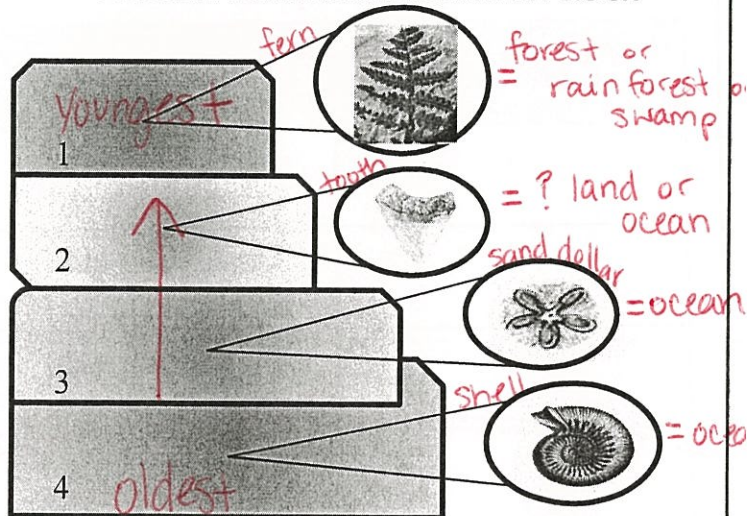 fern
= forest or
rainforest o
swamp
youngest
1
tooth
= ? land or
ocean
2
sand dollar
= ocean
3
shell
= ocea
4
oldest